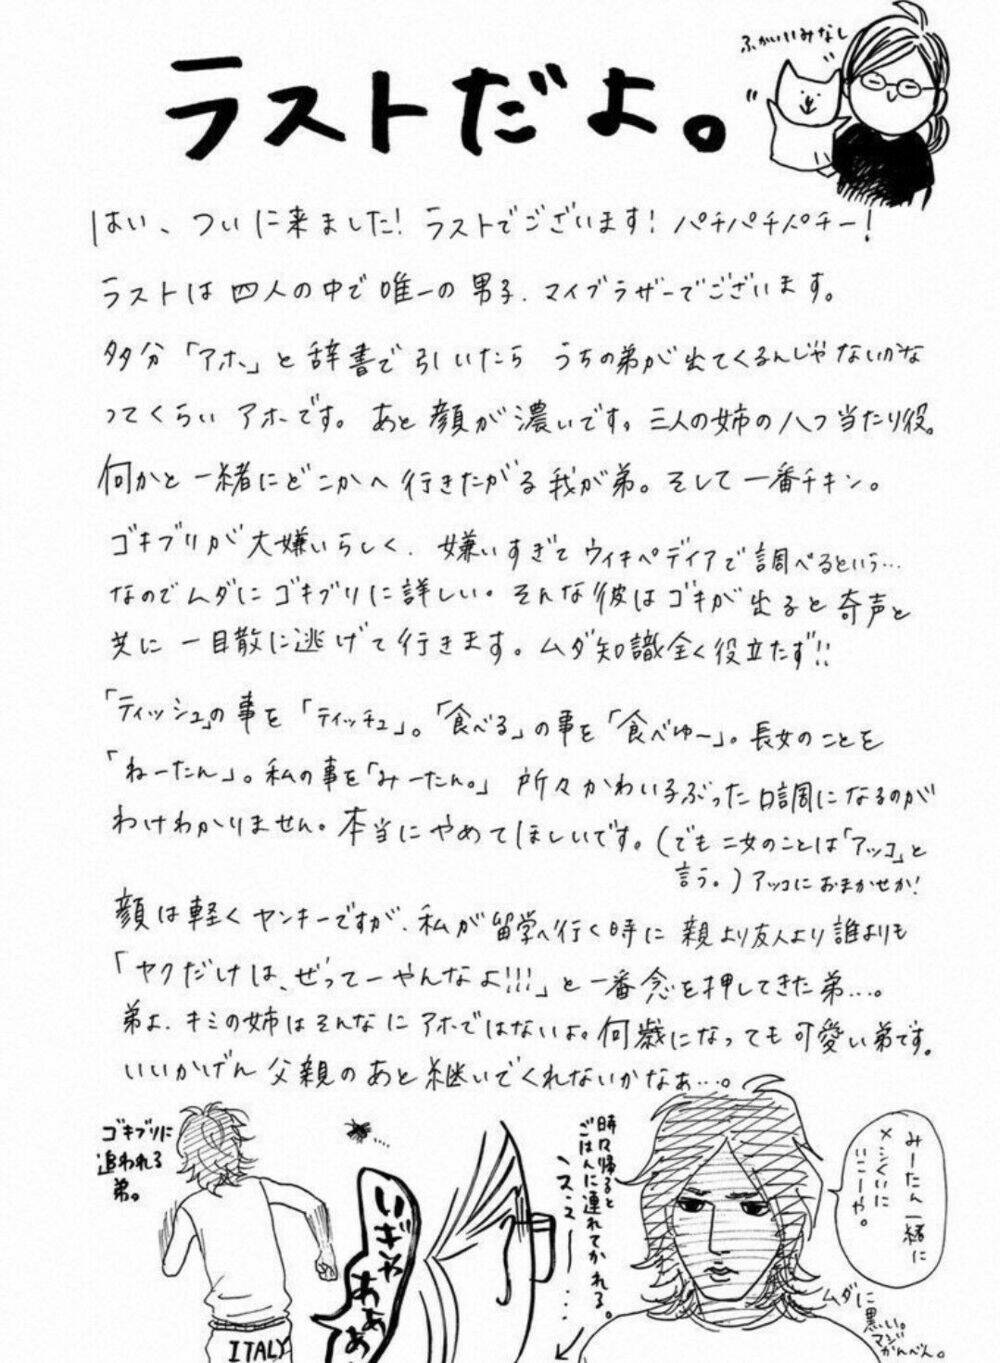 ラストだよ。
ふかいいみなし
はい、ついに来ました!ラストでございます!パチパチパチー!
ラストは四人の中で唯一の男子、マイブラザーでございます。
多分「アホ」と辞書で引いたらうちの弟が出てくるんじゃないかな
ってくらいアホです。あと顔が濃いです。三人の姉の八つ当たり役。
何かと一緒にどこかへ行きたがる我が弟。そして一番チキン。
ゴキブリが大嫌いらしく、嫌いすぎてウィキペディアで調べるという…
なのでムダにゴキブリに詳しい。そんな彼はゴキが出ると奇声と
共に一目散に逃げて行きます。ムダ知識全く役立たず!!
「ティッシュ」の事を「ティッチュ」。「食べる」の事を「食べゆー」。長女のことを
「ねーたん」。私の事を「みーたん。」所々かわい子ぶった口調になるのが
わけわかりません。本当にやめてほしいです。(でも二女のことは「アッコ」と
言う。)アッコにおまかせか!
顔は軽くヤンキーですが、私が留学へ行く時に親より友人より誰よりも
「ヤクだけは、ぜってーやんなよ!!!」と一番念を押してきた弟…。
弟よ、キミの姉はそんなにアホではないよ。何歳になっても可愛い弟です。
いいかげん父親のあと継いでくれないかなぁ…。
ゴキブリに
追われる
弟。
いぎゃ
あぁ
あ
ITALY
時々帰ると
ごはんに連れてかれる。
みーたん一緒に
メシくいに
いこーや。
ムダに
黒い。
マジ
かんべん。